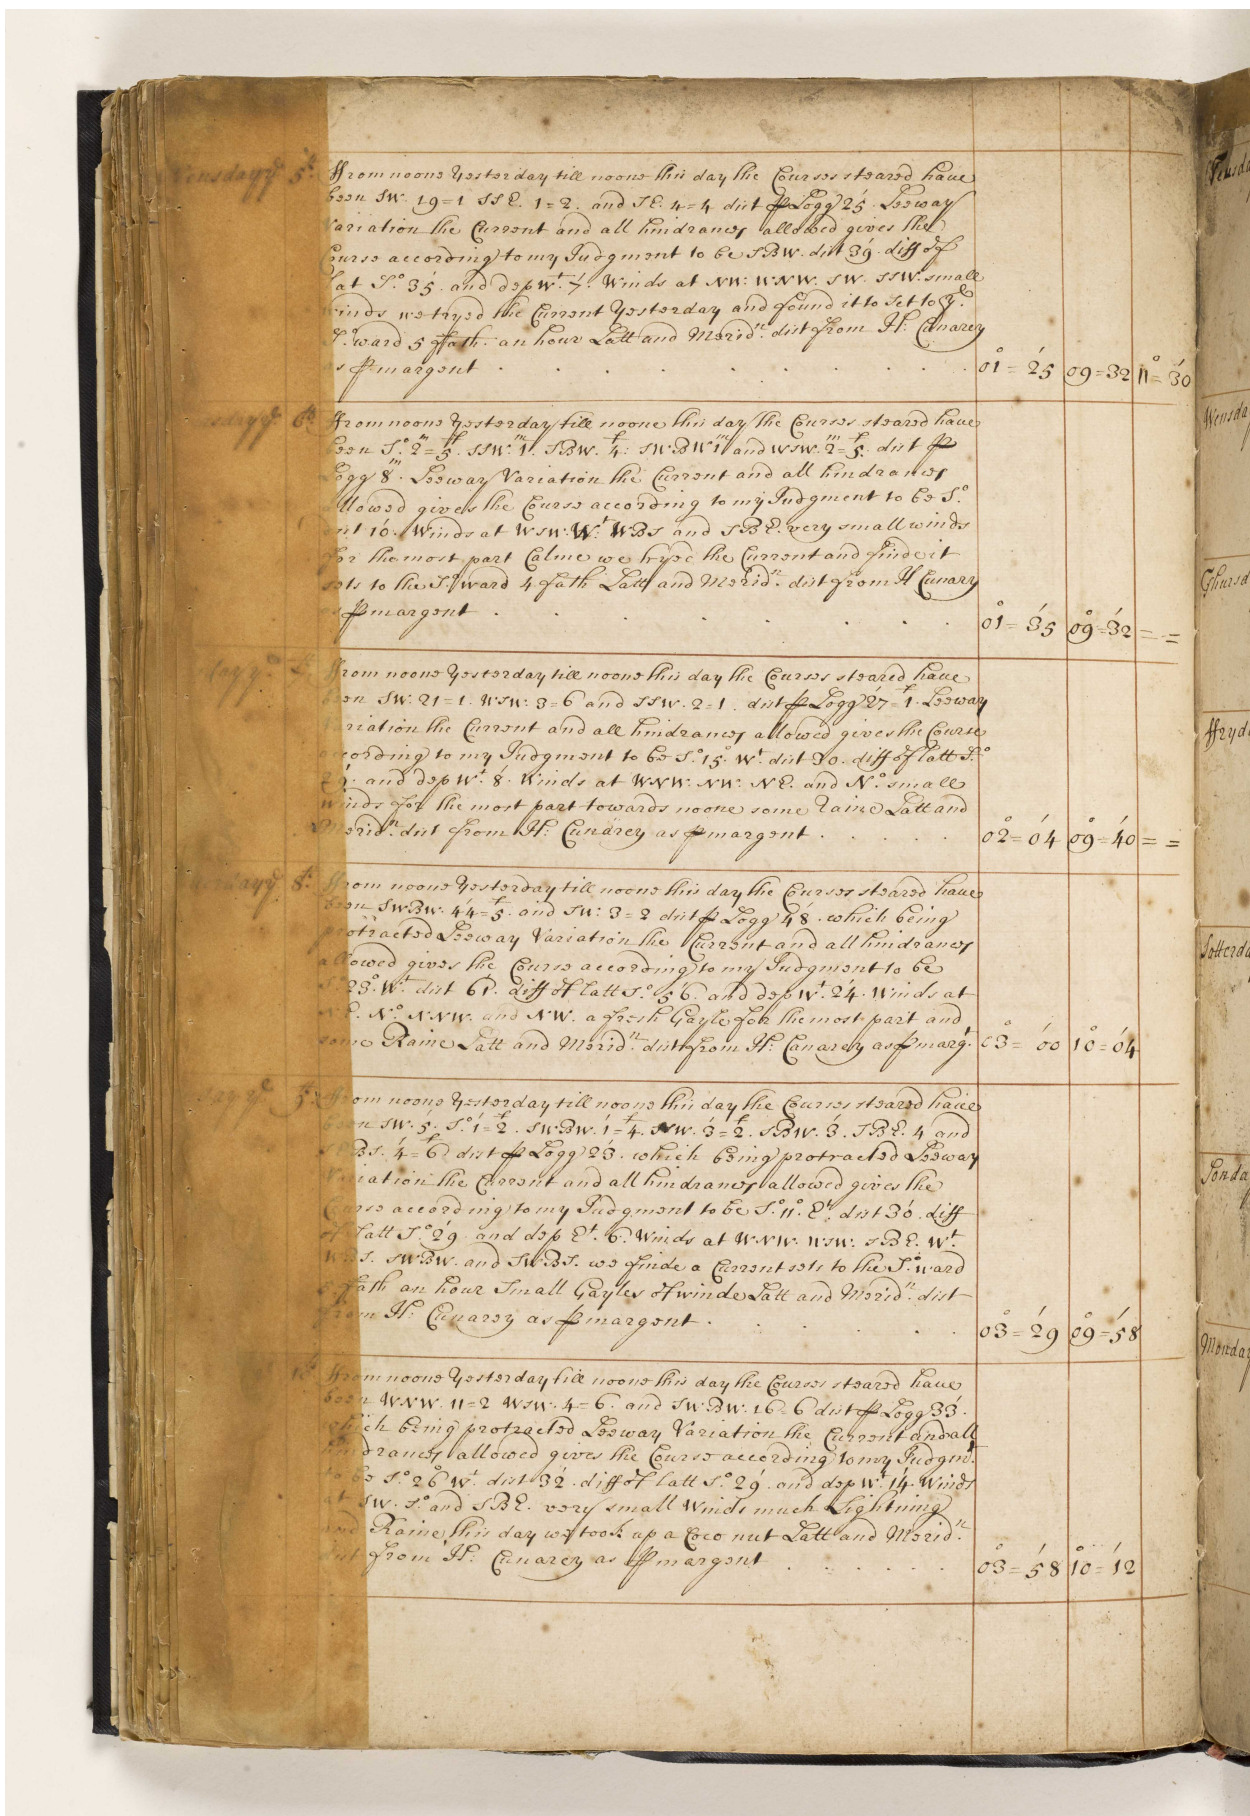 Wensday yᵉ 5ᵗʰ ffrom noone Yesterday till noone this day the Courses steared haue
been SW. 19=1 SSE. 1=2. and SE. 4=4 dist ꝑ Logg 25. Leeway
Variation the Current and all hindrances allowed gives the
Course according to my Judgment to be SBW. dist 39. diff of
Lat S.º 35. and dep Wᵗ. 7. Winds at NW: WNW. SW. SSW. small
winds we tryed the Current Yesterday and found it to Set to yᵉ
S.ºward 5 ffath. an hour Latt and Merid.ⁿ dist from H: Canarey
as ꝑ margent 01=25 09=32 11=30
6ᵗʰ ffrom noone Yesterday till noone this day the Courses steared haue
been S.º 2ᵐ=5ᶠ. SSW. 1ᵐ. SBW. 4ᶠ: SWBW 1ᵐ and WSW. 2ᵐ=5ᶠ. dist ꝑ
Logg 8ᵐ. Leeway Variation the Current and all hindrances
allowed gives the Course according to my Judgment to be S.º
dist 10. Winds at WSW: Wᵗ: WBS and SBE. very small winds
for the most part Calme we tryed the Current and finde it
sets to the S.ºward 4 fath Latt and Merid.ⁿ dist from H Canary
as ꝑ margent 01=35 09=32 = =
day yᵉ ffrom noone Yesterday till noone this day the Courses steared haue
been SW. 21=1. WSW. 3=6 and SSW. 2=1. dist ꝑ Logg 27=1ᶠ. Leeway
Variation the Current and all hindrances allowed gives the Course
according to my Judgment to be S.º 15.º Wᵗ. dist 30. diff of latt S.º
29. and dep Wᵗ. 8. Winds at WNW. NW. NE. and N.º small
winds for the most part towards noone some Raine Latt and
Merid.ⁿ dist from H: Canarey as ꝑ margent 02=04 09=40 = =
day yᵉ 8ᵗʰ ffrom noone Yesterday till noone this day the Courses steared haue
been SWBW. 44=5ᶠ. and SW: 3=2 dist ꝑ Logg 48. which being
protracted Leeway Variation the Current and all hindrances
allowed gives the Course according to my Judgment to be
S.º 23.º Wᵗ dist 61. diff of latt S.º 56. and dep Wᵗ. 24. Winds at
NE. N.º NNW. and NW. a fresh Gayle for the most part and
some Raine Latt and Merid.ⁿ dist from H: Canarey as ꝑ marg.ᵗ 03=00 10=04
day yᵉ ffrom noone Yesterday till noone this day the Courses steared haue
been SW. 5. S.º 1=2ᶠ. SWBW. 1=4ᶠ. SW. 3=2ᶠ. SBW. 3. SBE. 4 and
SEBS. 4=6ᶠ dist ꝑ Logg 23. which being protracted Leeway
Variation the Current and all hindrances allowed gives the
Course according to my Judgment to be S.º 11.º Eᵗ. dist 30. diff
of latt S.º 29 and dep Eᵗ. 6. Winds at WNW. WSW. SBE. Wᵗ.
WBS. SWBW. and SWBS. we finde a Current sets to the S.ºward
ffath an hour Small Gayles of winde Latt and Merid.ⁿ dist
from H: Canarey as ꝑ margent 03=29 09=58
10ᵗʰ ffrom noone Yesterday till noone this day the Courses steared haue
been WNW. 11=2 WSW. 4=6. and SWBW. 16=6 dist ꝑ Logg 33.
which being protracted Leeway Variation the Current and all
hindrances allowed gives the Course according to my Judgm.ᵗ
to be S.º 26º Wᵗ dist 32. diff of latt S.º 29. and dep Wᵗ. 14. Winds
at SW. S.º and SBE. very small Winds much Lightning
and Raine this day we took up a Coco nut Latt and Merid.ⁿ
dist from H: Canarey as ꝑ margent 03=58 10=12
Wensda
Thursd
ffryd
Satterd
Sonda
Monday